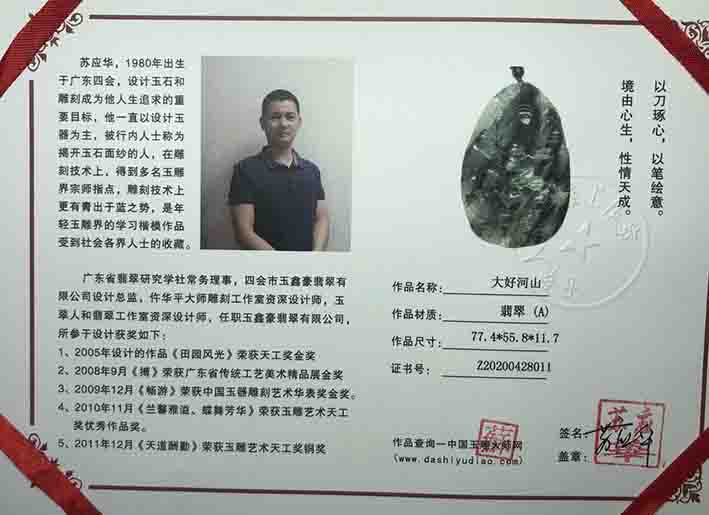 苏应华，1980年出生
于广东四会，设计玉石和
雕刻成为他人生追求的重
要目标，他一直以设计玉
器为主，被行内人士称为
揭开玉石面纱的人，在雕
刻技术上，得到多名玉雕
界宗师指点，雕刻技术上
更有青出于蓝之势，是年
轻玉雕界的学习楷模作品
受到社会各界人士的收藏。
广东省翡翠研究学社常务理事，四会市玉鑫豪翡翠有
限公司设计总监，仵华平大师雕刻工作室资深设计师，玉
翠人和翡翠工作室资深设计师，任职玉鑫豪翡翠有限公司，
所参于设计获奖如下：
1、2005年设计的作品《田园风光》荣获天工奖金奖
2、2008年9月《搏》荣获广东省传统工艺美术精品展金奖
3、2009年12月《畅游》荣获中国玉器雕刻艺术华表奖金奖。
4、2010年11月《兰馨雅逅、蝶舞芳华》荣获玉雕艺术天工
奖优秀作品奖。
5、2011年12月《天道酬勤》荣获玉雕艺术天工奖铜奖
以刀琢心，以笔绘意。
境由心生，性情天成。
作品名称：大好河山
作品材质：翡翠（A）
作品尺寸：77.4*55.8*11.7
证书号：Z20200428011
作品查询—中国玉雕大师网
(www.dashiyudiao.com)
签名：苏应华
盖章：